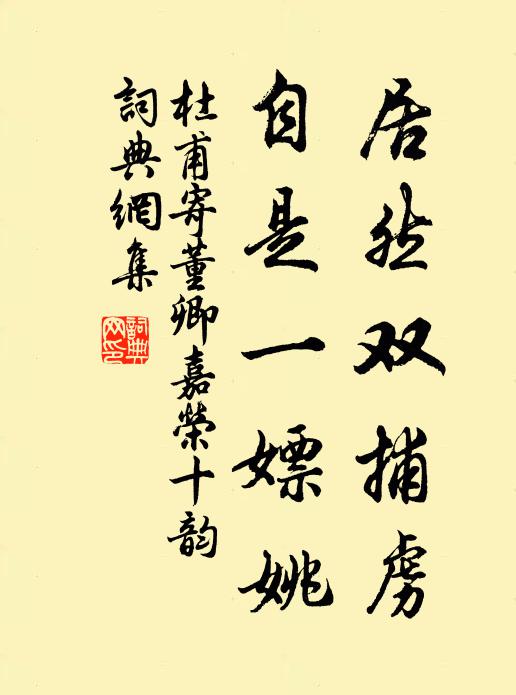 居然双捕虏
自是一嫖姚
杜甫寄董卿嘉荣十韵
詞典網集
詞典
网印